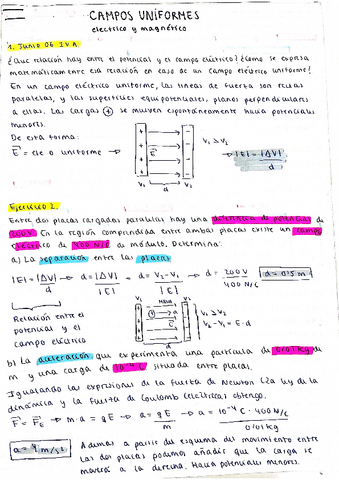 CAMPOS UNIFORMES
electrico y magnético
1. Junio 06 IVA
¿Que relación hay entre el potencial y el campo eléctrico? ¿Como se expresa
matematicamente esa relación en caso de un campo eléctrico uniforme?
En un campo eléctrico uniforme, las lineas de fuerza son rectas
paralelas, y las superficies equipotenciales, planos perpendiculares
a ellas. Las cargas (+) se mueven espontáneamente hacia potenciales
menores.
De esta forma:
E⃗ = cte o uniforme → + + + + E⃗ - - - - V₁ > V₂ → |E| = |ΔV| / d
V₁ d V₂
Ejercicio 2.
Entre dos placas cargadas paralelas hay una diferencia de potencial de
200V. En la región comprendida entre ambas placas existe un campo
eléctrico de 400 N/C de módulo. Determina:
a) La separación entre las placas
|E| = |ΔV| / d → d = |ΔV| / |E| → d = V₂ - V₁ / |E| → d = 200V / 400 N/C d = 0'5 m
Relación entre el
potencial y el
campo eléctrico
V₁ V₂
d
V₁ > V₂
V₂ - V₁ = E · d
b) La aceleración que experimenta una partícula de 0'01 kg de
m y una carga de 10⁻⁴ C situada entre placas.
Igualando las expresiones de la fuerza de Newton (2a ley de la
dinámica y la fuerza de Coulomb eléctrica) obtengo.
F⃗ = F⃗e → m · a = q E → a = q E / m → a = 10⁻⁴ C · 400 N/C / 0'01 kg
a = 4 m/s²
Ademas a partir del esquema del movimiento entre
las dos placas podemos añadir que la carga se
moverá a la derecha. Hacia potenciales menores.